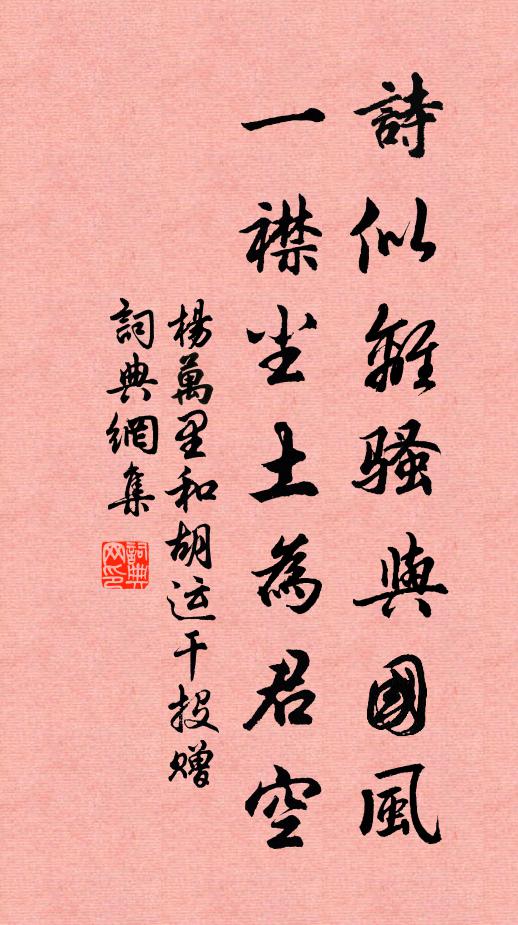 詩似離騷與國風
一襟尘土為君空
楊萬里和胡运干投贈
詞典網集
詞典
网印